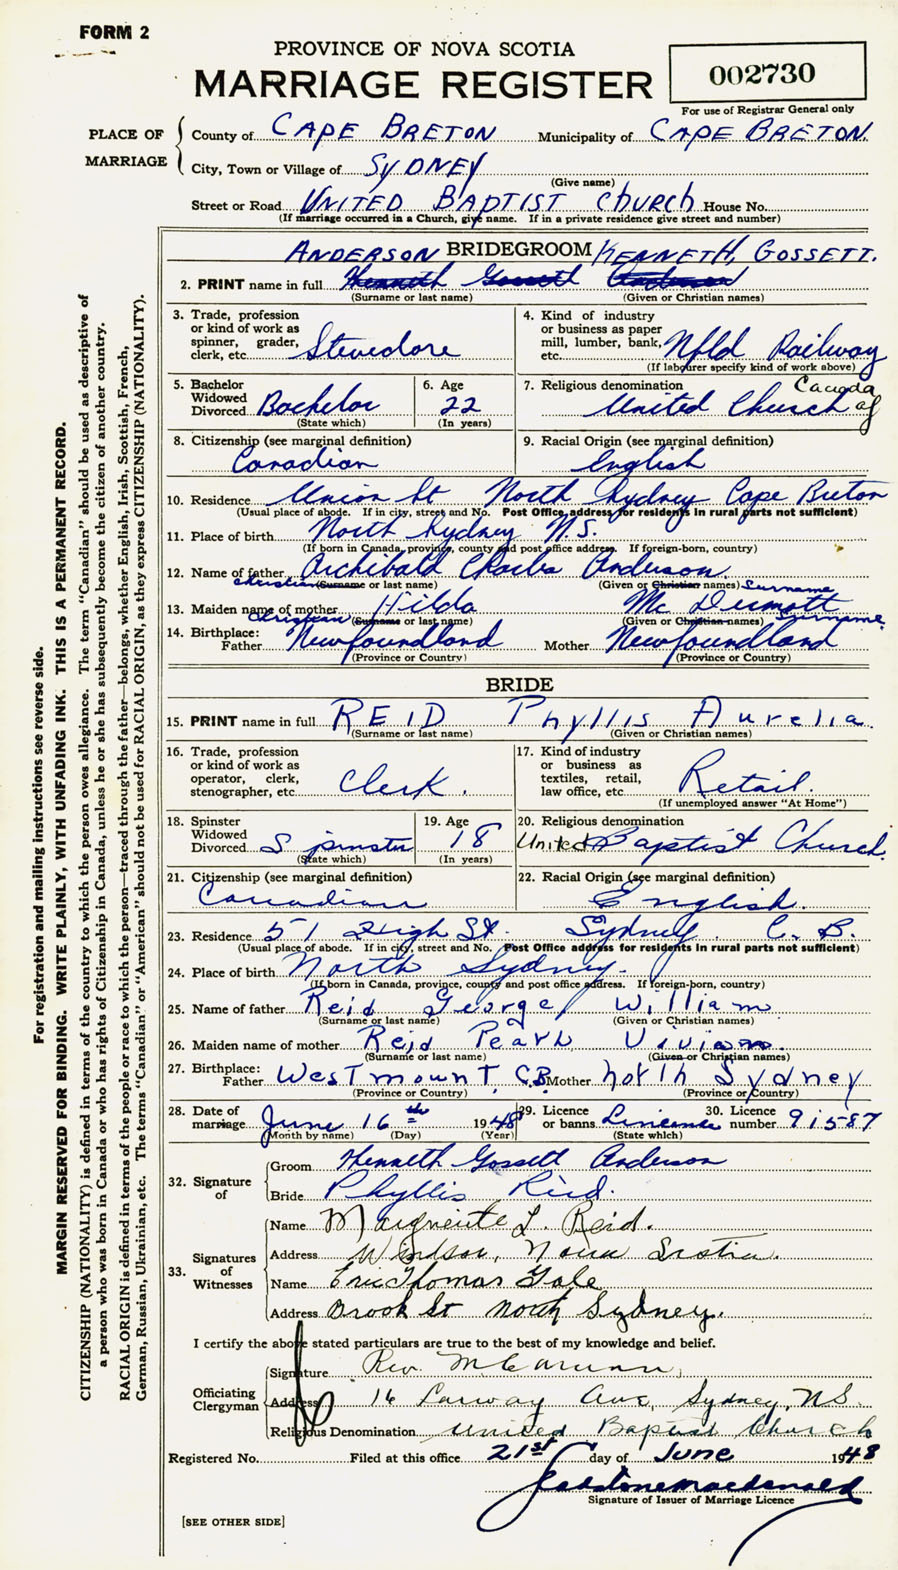 FORM 2
PROVINCE OF NOVA SCOTIA
MARRIAGE REGISTER
002730
For use of Registrar General only
PLACE OF MARRIAGE
County of CAPE BRETON Municipality of CAPE BRETON.
City, Town or Village of SYDNEY
(Give name)
Street or Road UNITED BAPTIST Church House No.
(If marriage occurred in a Church, give name. If in a private residence give street and number)
ANDERSON BRIDEGROOM KENNETH, GOSSETT.
2. PRINT name in full Kenneth Gossett Anderson
(Surname or last name) (Given or Christian names)
3. Trade, profession or kind of work as spinner, grader, clerk, etc. Stevedore
4. Kind of industry or business as paper mill, lumber, bank, etc. Nfld Railway
(If labourer specify kind of work above)
5. Bachelor Widowed Divorced Bachelor
(State which)
6. Age 22
(In years)
7. Religious denomination United Church of Canada
8. Citizenship (see marginal definition) Canadian
9. Racial Origin (see marginal definition) English
10. Residence Union St North Sydney Cape Breton
(Usual place of abode. If in city, street and No. Post Office address for residents in rural parts not sufficient)
11. Place of birth North Sydney N.S.
(If born in Canada, province, county and post office address. If foreign-born, country)
12. Name of father Archibald Charles Anderson
Christian (Surname or last name) (Given or Christian names) Surname
13. Maiden name of mother Hilda Mc Dermott
Christian (Surname or last name) (Given or Christian names) Surname
14. Birthplace: Father Newfoundland Mother Newfoundland
(Province or Country) (Province or Country)
BRIDE
15. PRINT name in full REID Phyllis Aurelia
(Surname or last name) (Given or Christian names)
16. Trade, profession or kind of work as operator, clerk, stenographer, etc. Clerk.
17. Kind of industry or business as textiles, retail, law office, etc. Retail.
(If unemployed answer "At Home")
18. Spinster Widowed Divorced Spinster
(State which)
19. Age 18
(In years)
20. Religious denomination United Baptist Church.
21. Citizenship (see marginal definition) Canadian
22. Racial Origin (see marginal definition) English.
23. Residence 51 High St. Sydney. C. B.
(Usual place of abode. If in city, street and No. Post Office address for residents in rural parts not sufficient)
24. Place of birth North Sydney.
(If born in Canada, province, county and post office address. If foreign-born, country)
25. Name of father Reid George William
(Surname or last name) (Given or Christian names)
26. Maiden name of mother Reid Pearl Vivian.
(Surname or last name) (Given or Christian names)
27. Birthplace: Father Westmount, C.B. Mother North Sydney
(Province or Country) (Province or Country)
28. Date of marriage June 16th 1948
(Month by name) (Day) (Year)
29. Licence or banns License
(State which)
30. Licence number 91587
32. Signature of
Groom Kenneth Gossett Anderson
Bride Phyllis Reid.
33. Signatures of Witnesses
Name Marguerite L. Reid.
Address Windsor, Nova Scotia.
Name Eric Thomas Gale
Address Brook St North Sydney.
I certify the above stated particulars are true to the best of my knowledge and belief.
Officiating Clergyman
Signature Rev.
Address 16 Ave, Sydney, N.S.
Religious Denomination United Baptist Church
Registered No. Filed at this office 21st day of June 1948
Gladstone Macdonald
Signature of Issuer of Marriage Licence
[SEE OTHER SIDE]
For registration and mailing instructions see reverse side.
MARGIN RESERVED FOR BINDING. WRITE PLAINLY, WITH UNFADING INK. THIS IS A PERMANENT RECORD.
CITIZENSHIP (NATIONALITY) is defined in terms of the country to which the person owes allegiance. The term "Canadian" should be used as descriptive of
a person who was born in Canada or who has rights of Citizenship in Canada, unless he or she has subsequently become the citizen of another country.
RACIAL ORIGIN is defined in terms of the people or race to which the person—traced through the father—belongs, whether English, Irish, Scottish, French,
German, Russian, Ukrainian, etc. The terms "Canadian" or "American" should not be used for RACIAL ORIGIN, as they express CITIZENSHIP (NATIONALITY).